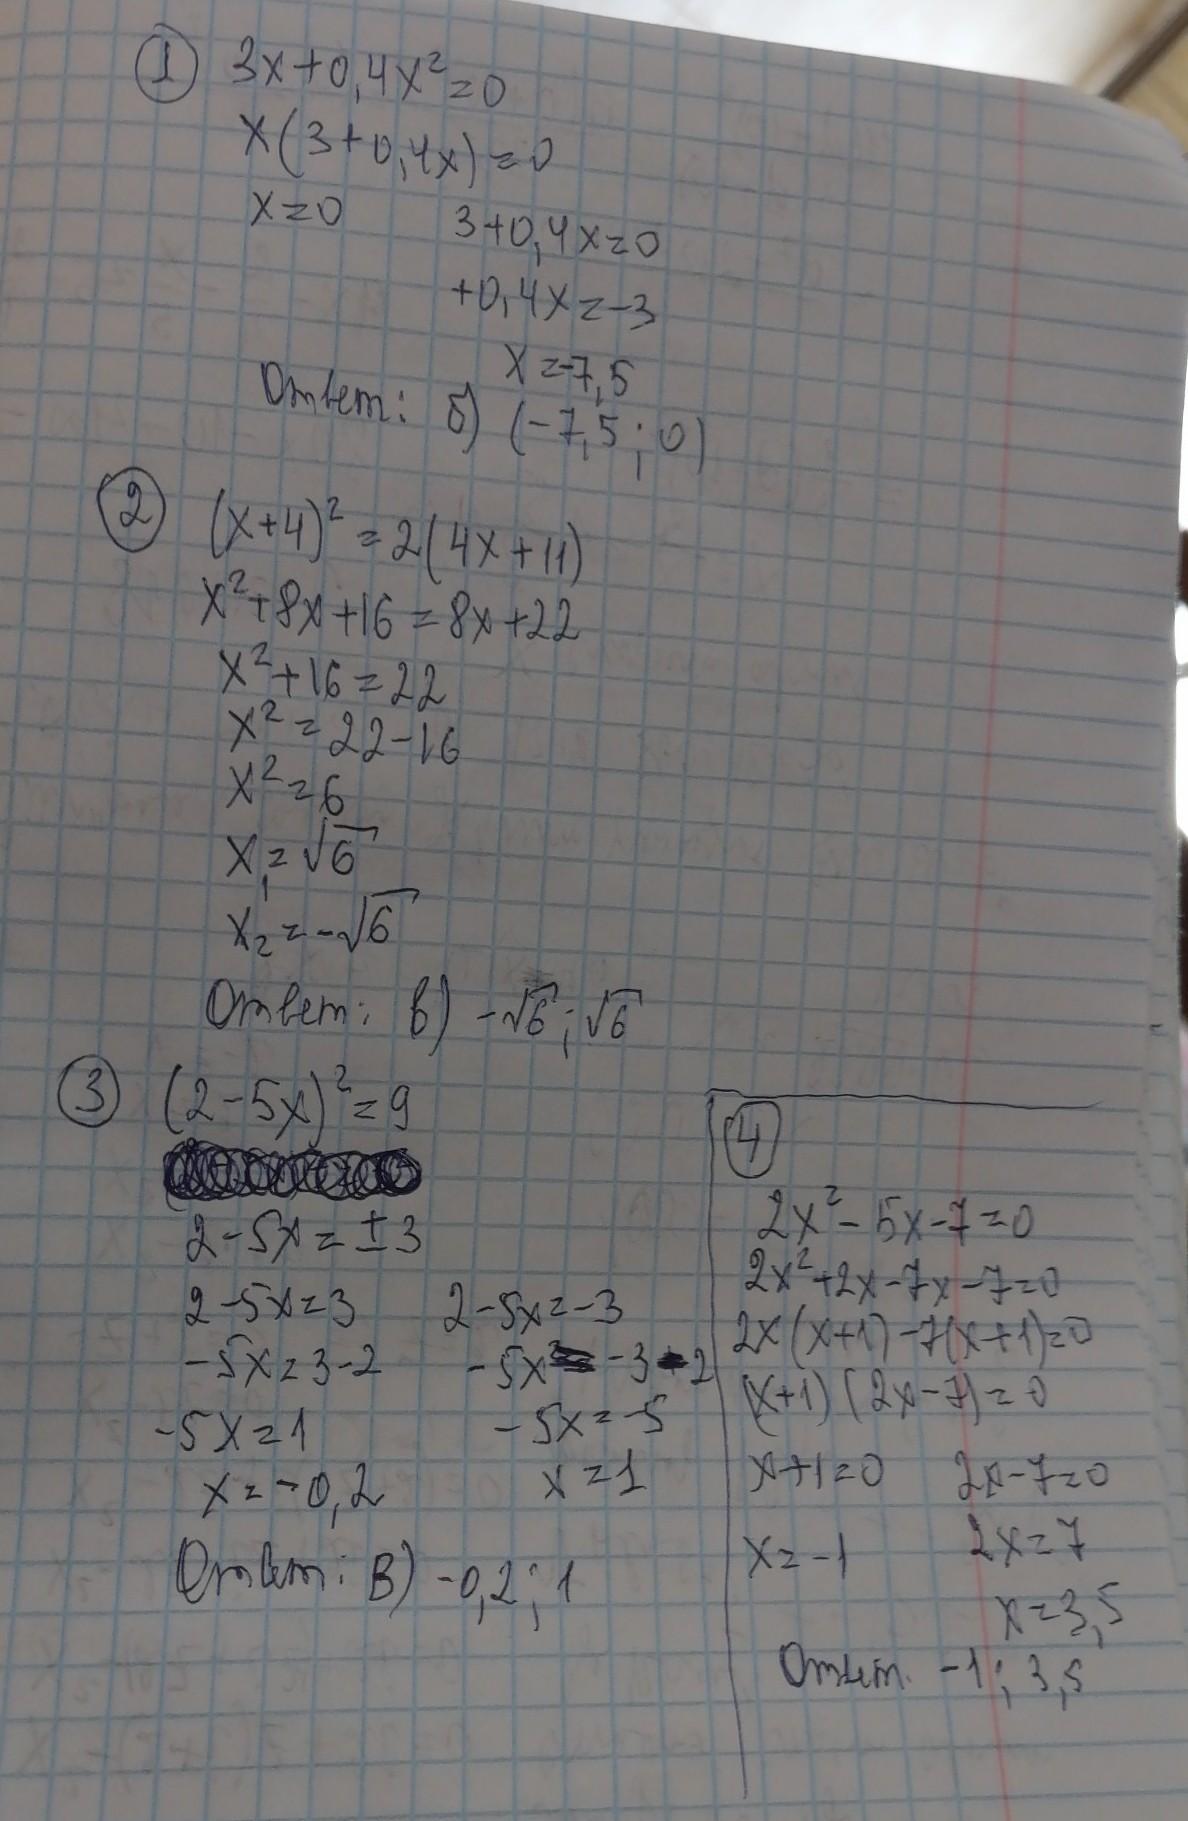 1 3x+0,4x²=0
x(3+0,4x)=0
x=0 3+0,4x=0
+0,4x=-3
x=-7,5
Ответ: б) (-7,5; 0)
2 (x+4)²=2(4x+11)
x²+8x+16=8x+22
x²+16=22
x²=22-16
x²=6
x₁=√6
x₂=-√6
Ответ: в) -√6; √6
3 (2-5x)²=9
2-5x=±3
2-5x=3 2-5x=-3
-5x=3-2 -5x=-3-2
-5x=1 -5x=-5
x=-0,2 x=1
Ответ: В) -0,2; 1
4
2x²-5x-7=0
2x²+2x-7x-7=0
2x(x+1)-7(x+1)=0
(x+1)(2x-7)=0
x+1=0 2x-7=0
x=-1 2x=7
x=3,5
Ответ. -1; 3,5